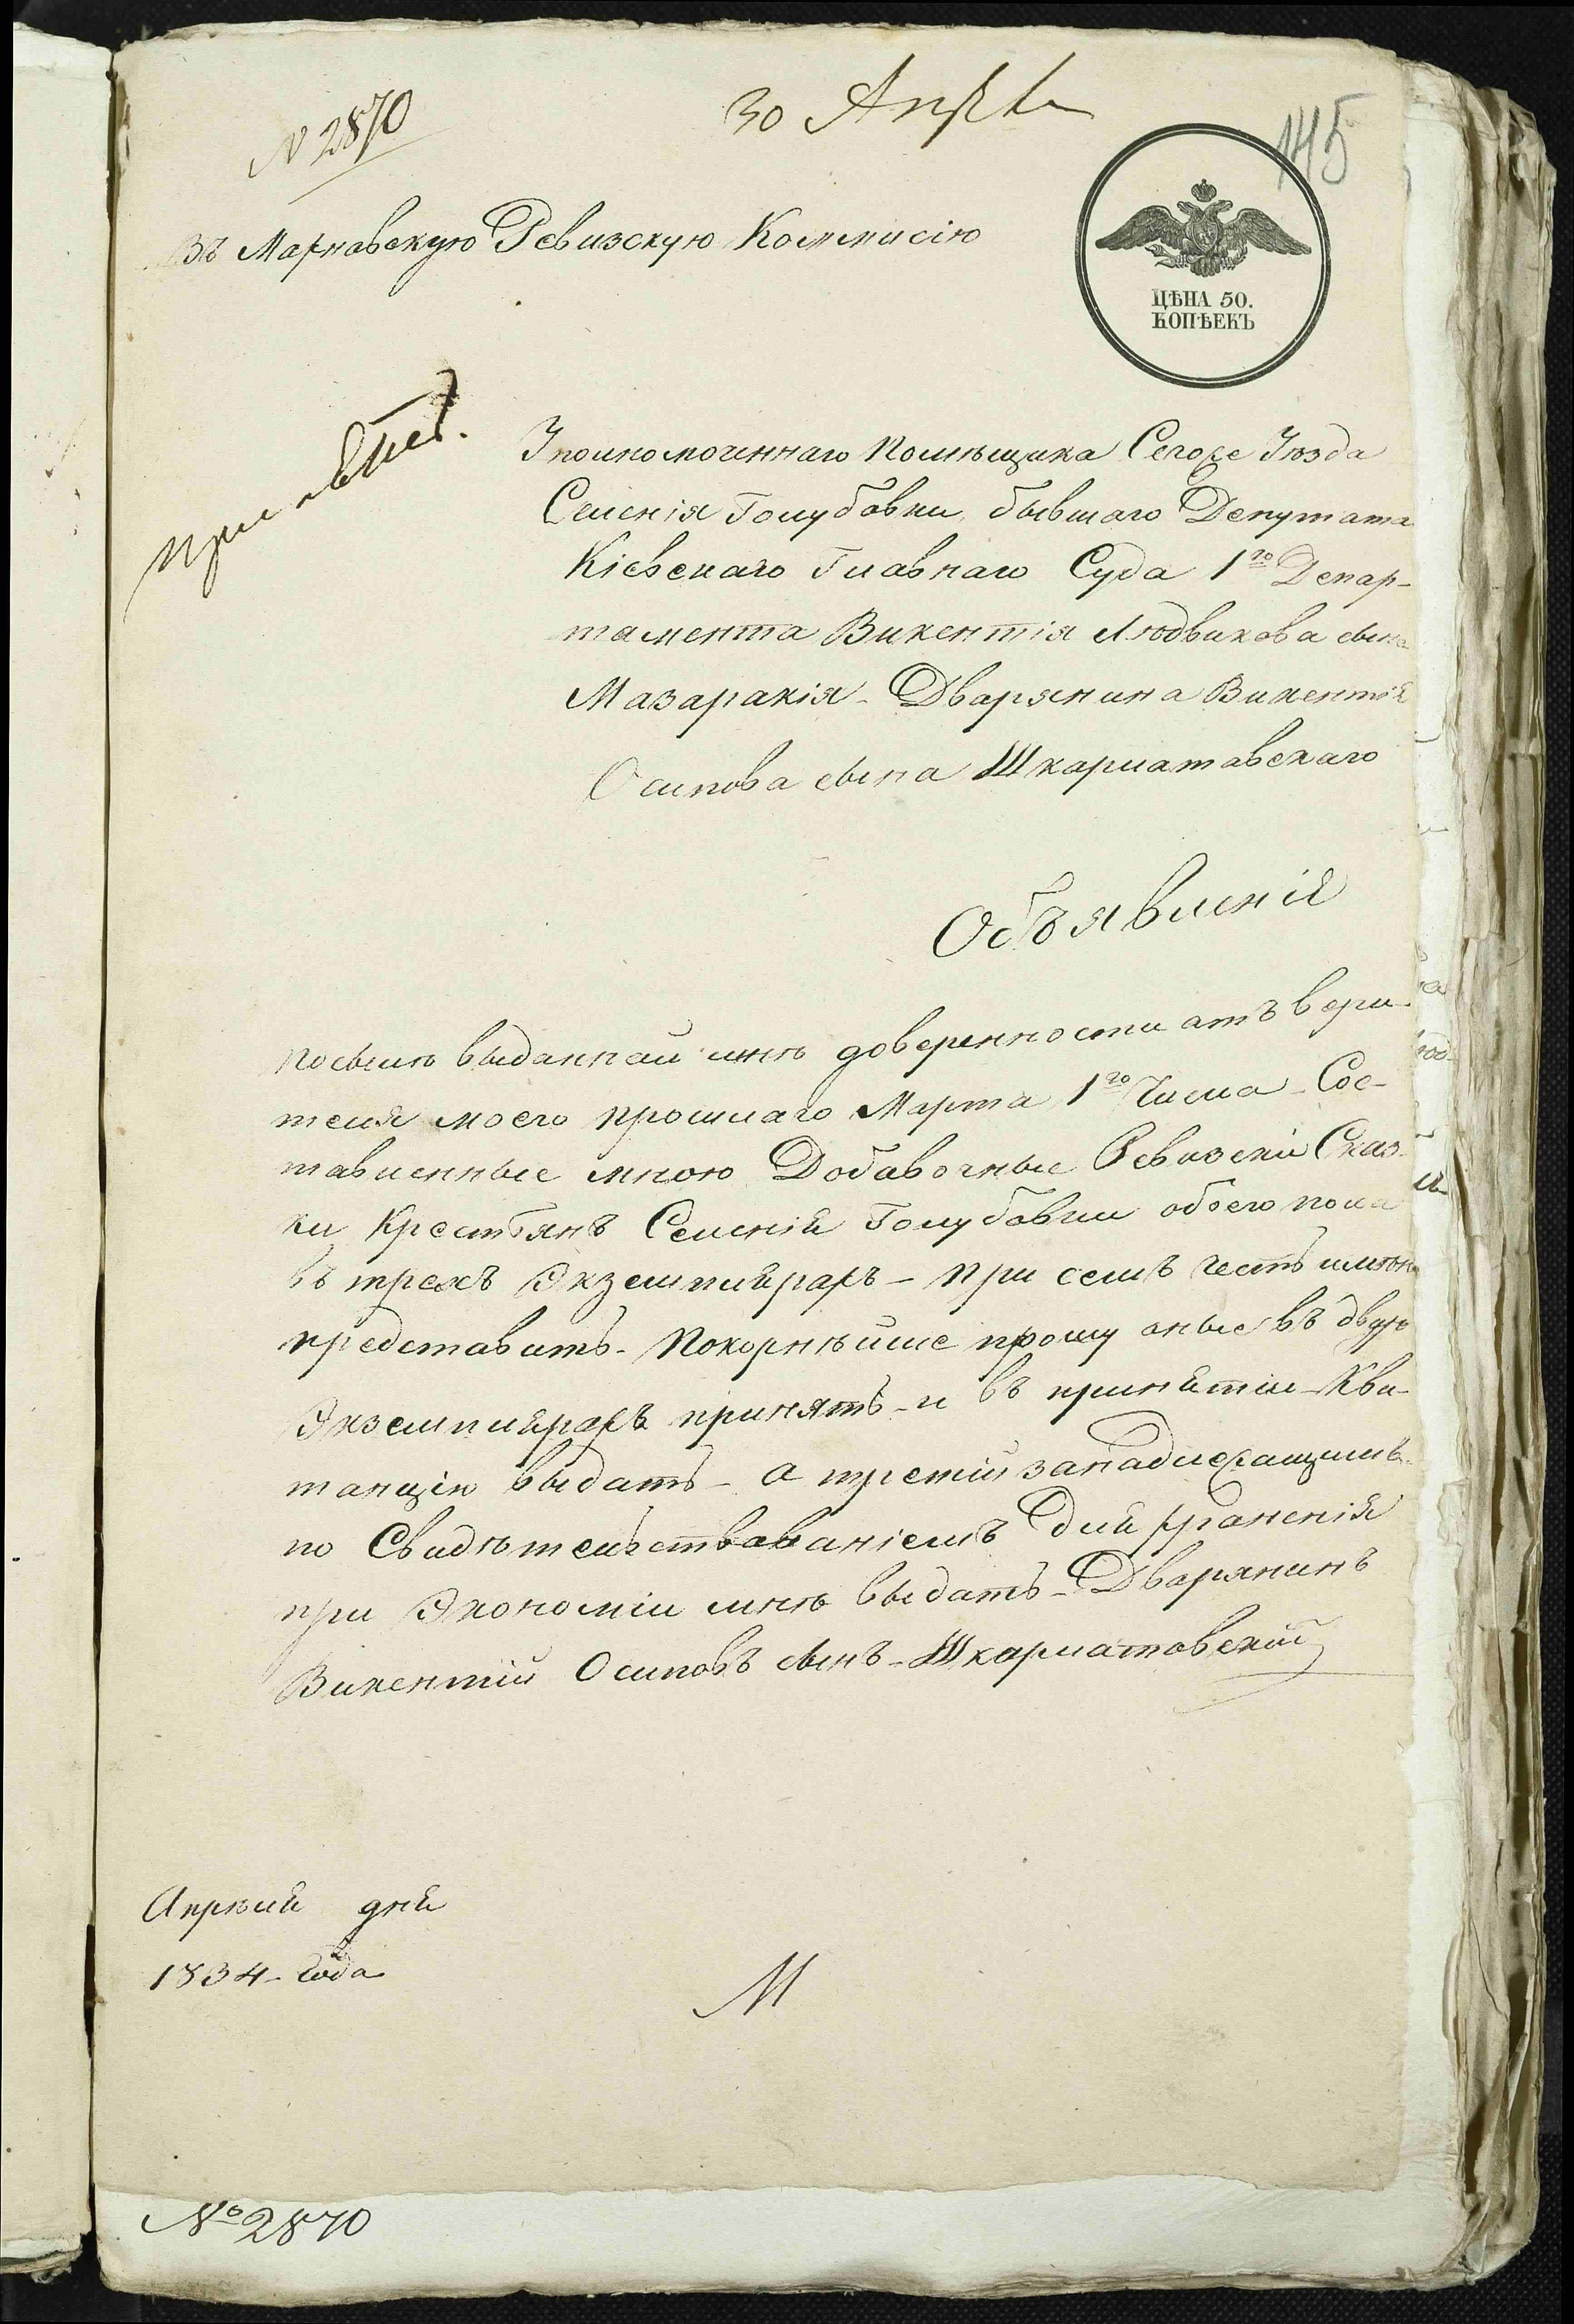 N 2870
30 Апр
145
Въ Марковскую Ревизскую Коммисію
ЦѢНА 50.
КОПѢЕКЪ
Уполномоченнаго Помѣщика Сегоже Уѣзда
Селенія Голубовки, бывшаго Депутата
Кіевскаго Главнаго Суда 1го Депар-
тамента Викентія Людвикова сына
Мазаракія - Дварянина Викентія
Осипова сына Шкарлатавскаго
Объявленія
посылѣ выданнай мнѣ доверенности атъ вери-
теля моего прошлаго Марта 1го Числа - Сос-
тавленные мною Добавочные Ревизскіи Сказ-
ки Крестьянъ Селенія Голубовки обоего пола
въ трехъ Экземплярахъ - при семъ честь имѣю
представить - Покорнѣйше прошу оные въ двухъ
Экземплярахъ принять - и въ принятіи - Кви-
танцію выдать - а третій занадлежащимъ
по Свидѣтельствованіемъ для храненія
при Экономіи мнѣ выдать - Дварянинъ
Викентій Осиповъ сынъ - Шкарлатовскій
Апрѣля дня
1834 - Года
М
№ 2870